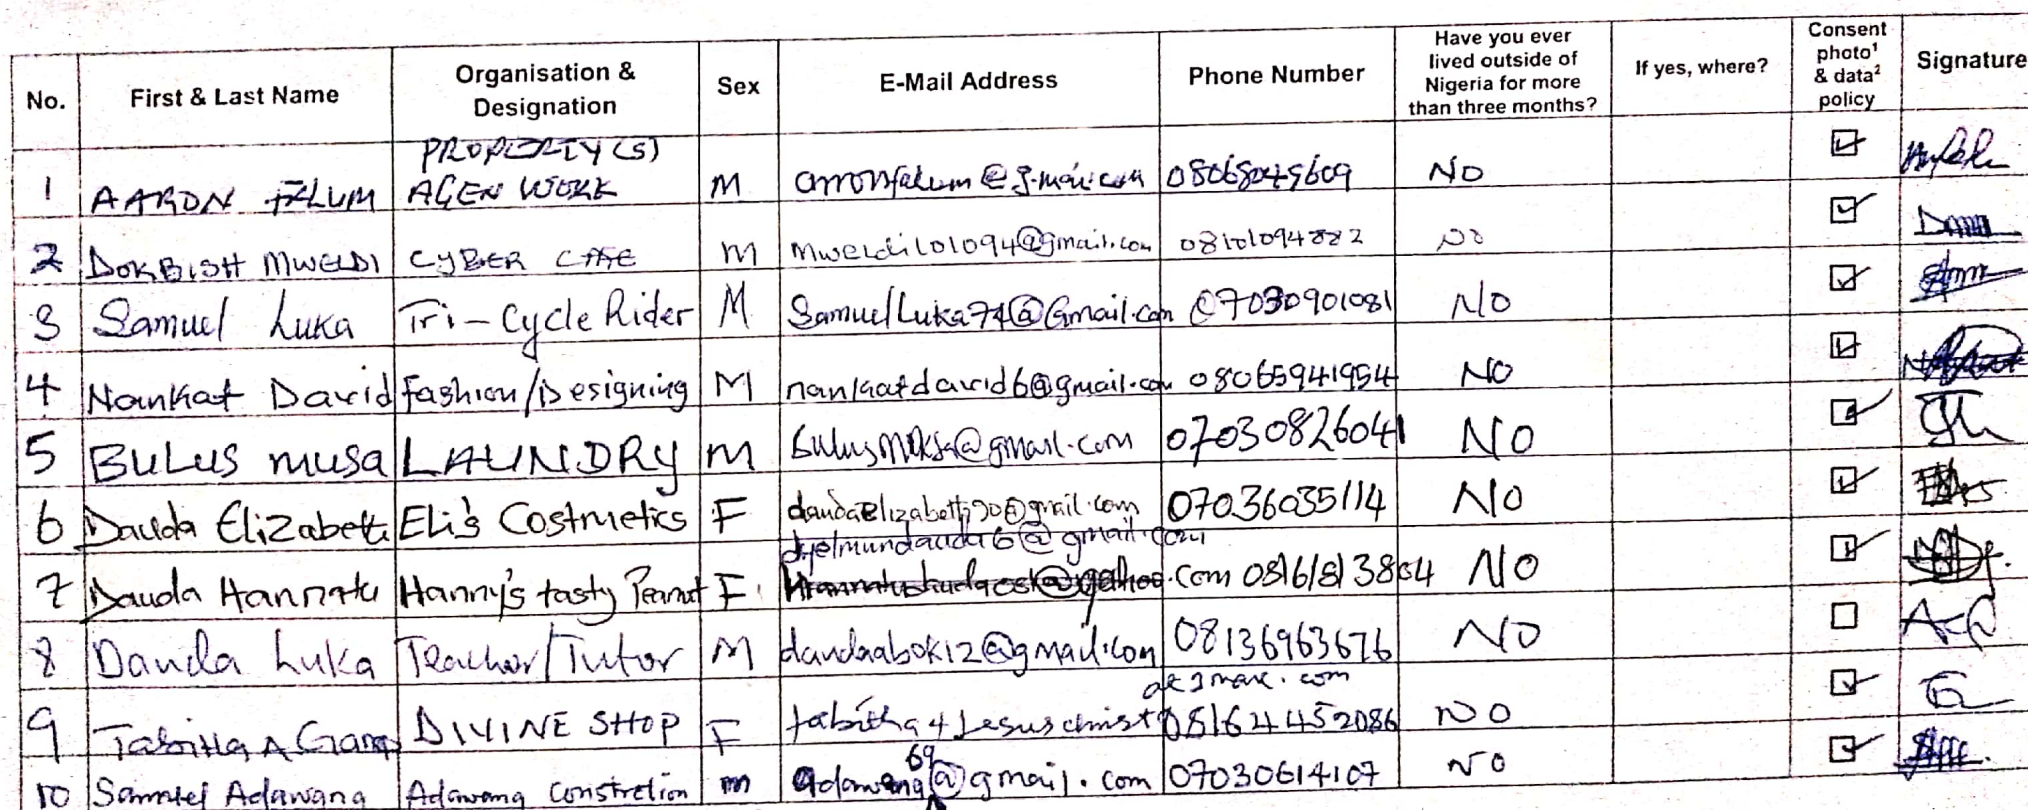 No. First & Last Name Organisation & Designation Sex E-Mail Address Phone Number Have you ever lived outside of Nigeria for more than three months? If yes, where? Consent photo¹ & data² policy Signature
1 AARON FALUM PROPERTY(S) AGEN WORK M 08068049609 NO
2 DOKBISH MWELDI CYBER CAFE M Mweldi101094@gmail.com 08101094882 NO
3 Samuel Luka Tri-Cycle Rider M SamuelLuka74@Gmail.com 07030901081 NO
4 Nankat David fashion/Designing M nankatdavid6@gmail.com 08065941954 NO
5 BULUS musa LAUNDRY M 07030826041 NO
6 Dauda Elizabeth Eli's Costmetics F daudaelizabeth90@gmail.com 07036035114 NO
7 Dauda Hannatu Hanny's tasty Peanut F .com NO
8 Dauda Luka Teacher/Tutor M daudaabok12@gmail.com 08136963676 NO
9 Tabitha A DIVINE SHOP F tabitha4Jesuschrist 08164452086 NO
10 Samuel Adawang Adawang constretion m adawang69@gmail.com 07030614107 NO